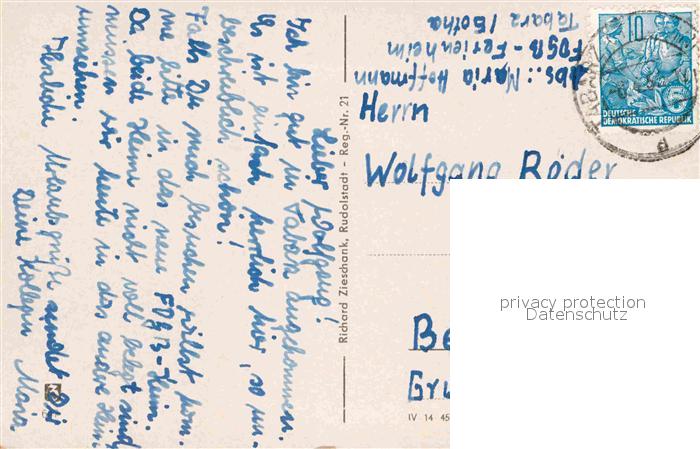 Lieber Wolfgang!
Ich bin gut in Tabarz angekommen.
Es ist einfach herrlich hier, so un-
beschreiblich schön!
Falls Du mich besuchen willst, kom-
me bitte in das neue FDGB-Heim.
Da beide Heime nicht voll belegt sind,
müssen wir heute in das andere Heim
umziehen.
Herzliche Urlaubsgrüße sendet Dir
Deine Kollegin Maria
Richard Zieschank, Rudolstadt – Reg.-Nr. 21
Abs.: Maria Hoffmann
FDGB-Ferienheim
Tabarz / Gotha
10
DEUTSCHE
DEMOKRATISCHE REPUBLIK
5
Herrn
Wolfgang Röder
Be
Gru
IV 14 45
privacy protection
Datenschutz